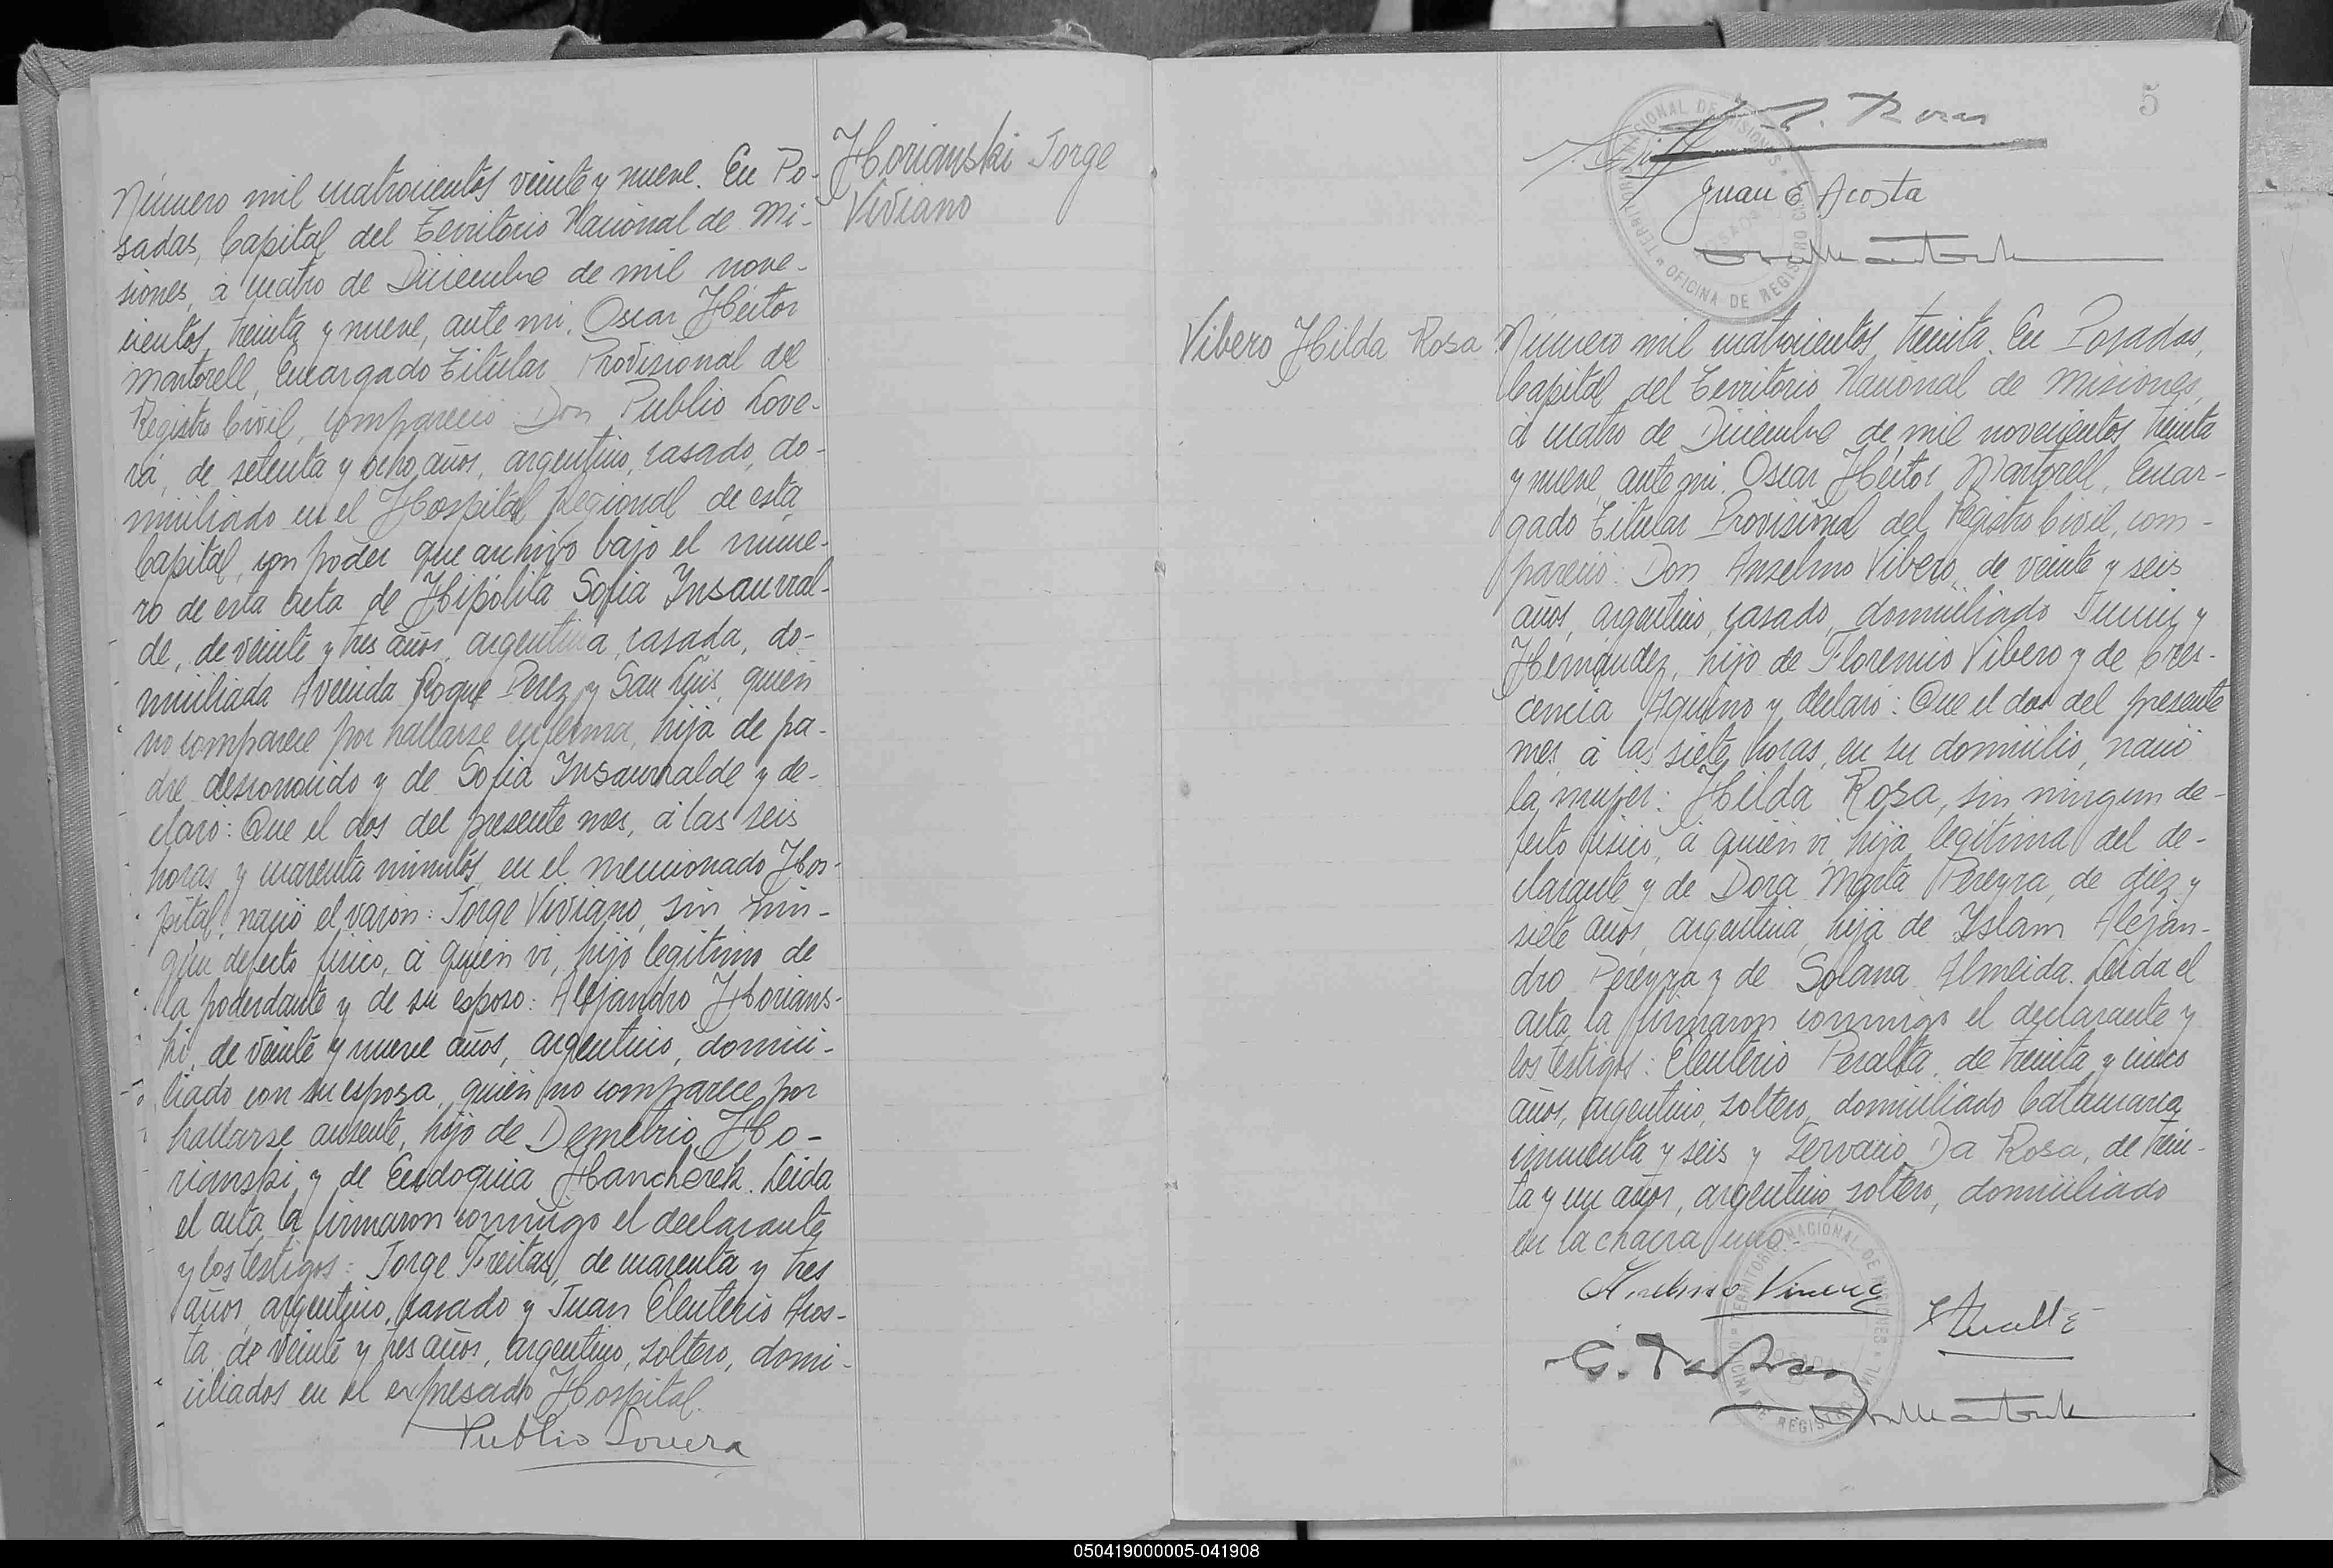 Número mil cuatrocientos veinte y nueve. En Po-
sadas, Capital del Territorio Nacional de Mi-
siones, á cuatro de Diciembre de mil nove-
cientos treinta y nueve, ante mi, Oscar Héctor
Martorell, Encargado Titular Provisional del
Registro Civil, compareció Don Publio Love-
ra, de setenta y ocho años, argentino, casado, do-
miciliado en el Hospital Regional de esta
Capital, con poder que archivo bajo el núme-
ro de esta acta de Hipólita Sofia Ynsaurral-
de, de veinte y tres años, argentina, casada, do-
miciliada Avenida Roque Perez y San Luis, quien
no comparece por hallarse enferma, hija de pa-
dre desconocido y de Sofia Ynsaurralde y de-
claró: Que el dos del presente mes, á las seis
horas y cuarenta minutos, en el mencionado Hos-
pital, nació el varon: Jorge Viviano, sin nin-
gún defecto físico, á quien vi, hijo legitimo de
la poderdante y de su esposo: Alejandro Horians-
ki, de veinte y nueve años, argentino, domici-
liado con su esposa, quien no comparece por
hallarse ausente, hijo de Demetrio Ho-
rianski y de Eudoquia Hancherek. Leida
el acta, la firmaron conmigo el declarante
y los testigos: Jorge Freitas, de cuarenta y tres
años, argentino, casado y Juan Eleuterio Acos-
ta, de veinte y tres años, argentino, soltero, domi-
ciliados en el expresado Hospital.
Publio Lovera
Horianski Jorge
Viviano
5
Juan E Acosta
TERRITORIO NACIONAL DE MISIONES
OFICINA DE REGISTRO CIVIL
POSADAS
Vibero Hilda Rosa
Número mil cuatrocientos treinta. En Posadas,
Capital del Territorio Nacional de Misiones,
á cuatro de Diciembre de mil novecientos treinta
y nueve, ante mi, Oscar Héctor Martorell, Encar-
gado Titular Provisional del Registro Civil, com-
pareció: Don Anselmo Vibero, de veinte y seis
años, argentino, casado, domiciliado Junin y
Hernández, hijo de Florencio Vibero y de Cres-
cencia Aquino y declaró: Que el dos del presente
mes, á las siete horas, en su domicilio, nació
la mujer: Hilda Rosa, sin ningun de-
fecto físico, á quien vi, hija legitima del de-
clarante y de Dora Marta Pereyra, de diez y
siete años, argentina, hija de Yslam Alejan-
dro Pereyra y de Solana Almeida. Leida el
acta, la firmaron conmigo el declarante y
los testigos: Eleuterio Peralta, de treinta y cinco
años, argentino, soltero, domiciliado Catamarca
cincuenta y seis y Gervacio Da Rosa, de trein-
ta y un años, argentino, soltero, domiciliado
en la chacra uno.-
TERRITORIO NACIONAL DE MISIONES
OFICINA DE REGISTRO CIVIL
POSADAS
050419000005-041908